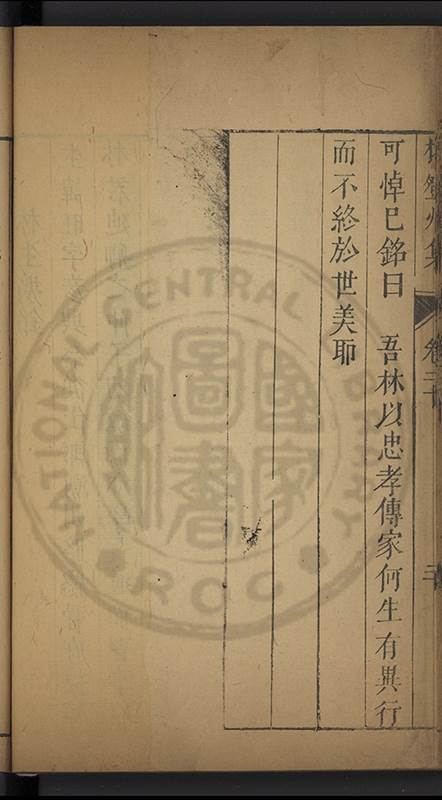 可悼已銘曰　吾林以忠孝傳家何生有異行
而不終於世美耶
NATIONAL CENTRAL LIBRARY
ROC
國家圖書館